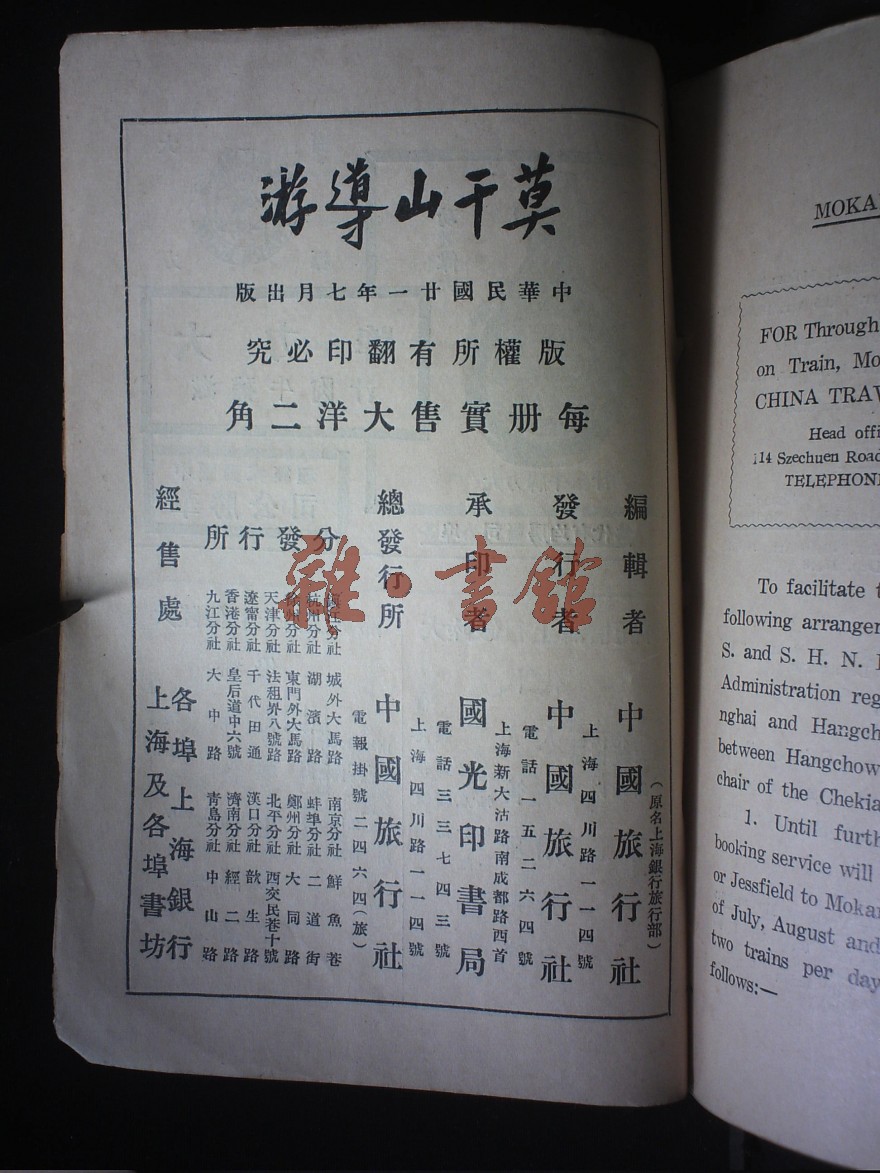 莫干山導游
中華民國廿一年七月出版
版權所有翻印必究
每册實售大洋二角
編輯者 中國旅行社
(原名上海銀行旅行部)
發行者 中國旅行社
上海四川路一一四號
電話一五二六四號
承印者 國光印書局
上海新大沽路南成都路西首
電話三三七四三號
總發行所 中國旅行社
上海四川路一一四號
電報掛號二四六四(旅)
分發行所
城外大馬路 南京分社 鮮魚巷
杭州分社 湖濱路 蚌埠分社 二道街
徐州分社 東門外大馬路 鄭州分社 大同路
天津分社 法租界八號路 北平分社 西交民巷十號
遼甯分社 千代田通 漢口分社 歆生路
香港分社 皇后道中六號 濟南分社 經二路
九江分社 大中路 青島分社 中山路
經售處 各埠上海銀行
上海及各埠書坊
雜·書館
MOKA
FOR Through
on Train, Mo
CHINA TRAV
Head offi
114 Szechuen Road
TELEPHON
To facilitate t
following arranger
S. and S. H. N.
Administration reg
nghai and Hangch
between Hangchow
chair of the Chekia
1. Until furth
booking service will
or Jessfield to Mokan
of July, August and
two trains per day
follows:—